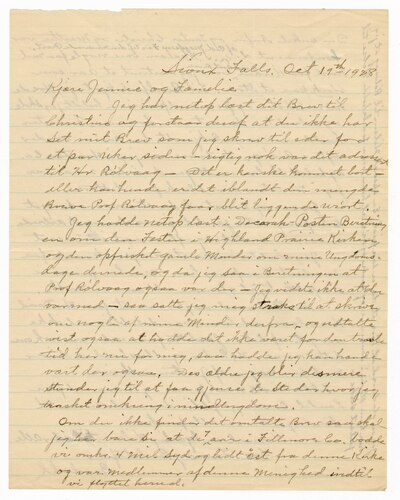 Sioux Falls. Oct 19th 1928
Kjære Jennie og Familie
Jeg har netop læst dit Brev til
Christine og forstaar deraf at du ikke har
Set mit Brev som jeg skrev til eder for
et par Uker siden - rigtig nok var det adresset
til Hr. Rölvaag - Det er kanske kommet bort -
eller kan hende er det iblandt den mængde
Breve Prof Rölvaag faar, blit liggende urört.
Jeg hadde netop læst i Decorah-Posten Beretning
en om den Festen i Highland Prairie Kirken
og den opfrisket gamle Minder om mine Ungdoms-
dage dernede, og da jeg saa i Beretningen at
Prof Rölvaag ogsaa var der - Jeg vidste ikke at du
var med - saa satte jeg mig straks til at skrive
om nogle af mine Minder derfra, og udtalte
vist ogsaa at hadde det ikke været for den
tid her nu for mig, saa hadde jeg kanhende
vært der ogsaa. Des ældre jeg blir des mere
stunder jeg til at faa gjense de Steder hvor jeg
trasket omkring i min Ungdom.
Om du ikke finder det omtalte Brev saa skal
jeg bare Si, at de aar i Fillmore Co. bodde
vi omkr. 4 Mil Syd og lidt Öst fra denne Kirke
og var Medlemmer af denne Menighed indtil
vi flyttet herud.